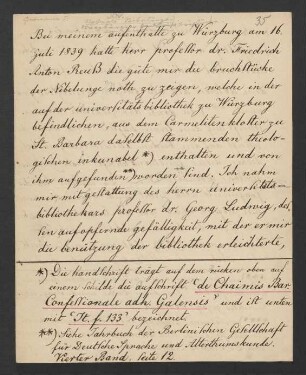 35
Bei meinem aufenthalte zu Würzburg am 16.
juli 1839 hatte herr professor dr. Friedrich
Anton Reuß die güte mir die bruchstücke
der Nibelunge noth zu zeigen, welche in der
auf der universitätsbibliothek zu Würzburg
befindlichen, aus dem Carmelitenkloster zu
St. Barbara daselbst stammenden theolo-
gischen inkunabel *) enthalten und von
ihm aufgefunden **) worden sind. Ich nahm
mir mit gestattung des herrn universitäts-
bibliothekars professor dr. Georg Ludwig, des-
sen aufopfernde gefälligkeit, mit der er mir
die benützung der bibliothek erleichterte,
*) Die handschrift trägt auf dem rücken oben auf
einem schilde die aufschrift "de Chaimis Bar.
Confessionale adh. Galensis" und ist unten
mit "It. f. 133" bezeichnet.
**) Siehe Jahrbuch der Berlinischen Gesellschaft
für Deutsche Sprache und Alterthumskunde.
Vierter Band. Seite 12.